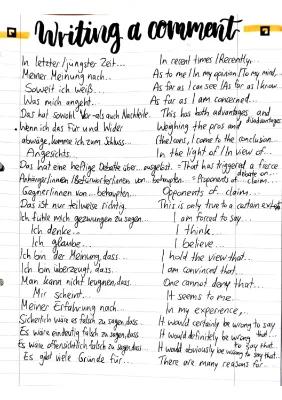 Writing a comment
In letzter/jüngster Zeit... In recent times/Recently...
Meiner Meinung nach... As to me/In my opinion/To my mind,...
Soweit ich weiß... As far as I can see/As far as I know...
Was mich angeht... As far as I am concerned...
Das hat sowohl Vor- als auch Nachteile. This has both advantages and disadvantages
Wenn ich das Für und Wider Weighing the pros and
abwäge, komme ich zum Schluss... cons, I come to the conclusion...
Angesichts... In the light of/In view of...
Das hat eine heftige Debatte über... ausgelöst. = That has triggered a fierce debate on...
Anhänger/innen/Befürworter/innen von... behaupten... = Proponents of... claim...
Gegner/innen von... behaupten... Opponents of... claim...
Das ist nur teilweise richtig. This is only true to a certain extent
Ich fühle mich gezwungen zu sagen... I am forced to say...
Ich denke... I think...
Ich glaube... I believe...
Ich bin der Meinung, dass... I hold the view that...
Ich bin überzeugt, dass... I am convinced that...
Man kann nicht leugnen, dass... One cannot deny that...
Mir scheint... It seems to me...
Meiner Erfahrung nach... In my experience,...
Sicherlich wäre es falsch zu sagen, dass... It would certainly be wrong to say
Es wäre eindeutig falsch zu sagen, dass... It would definitely be wrong to say that...
Es wäre offensichtlich falsch zu sagen, dass... It would obviously be wrong to say that...
Es gibt viele Gründe für... There are many reasons for...